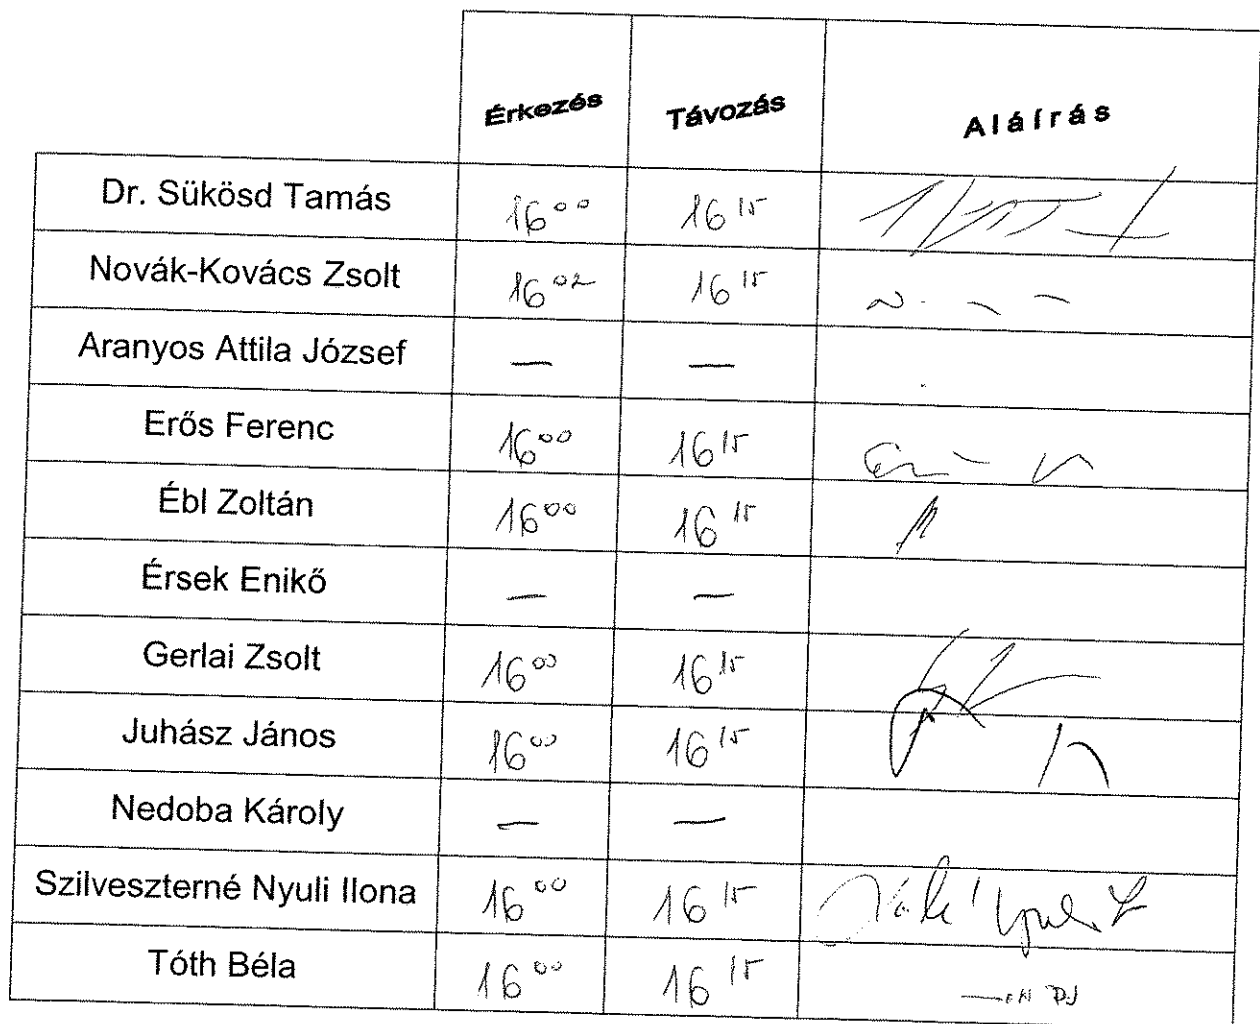 Érkezés Távozás Aláírás
Dr. Sükösd Tamás 16⁰⁰ 16¹⁵
Novák-Kovács Zsolt 16⁰² 16¹⁵
Aranyos Attila József — —
Erős Ferenc 16⁰⁰ 16¹⁵
Ébl Zoltán 16⁰⁰ 16¹⁵
Érsek Enikő — —
Gerlai Zsolt 16⁰⁰ 16¹⁵
Juhász János 16⁰⁰ 16¹⁵
Nedoba Károly — —
Szilveszterné Nyuli Ilona 16⁰⁰ 16¹⁵
Tóth Béla 16⁰⁰ 16¹⁵